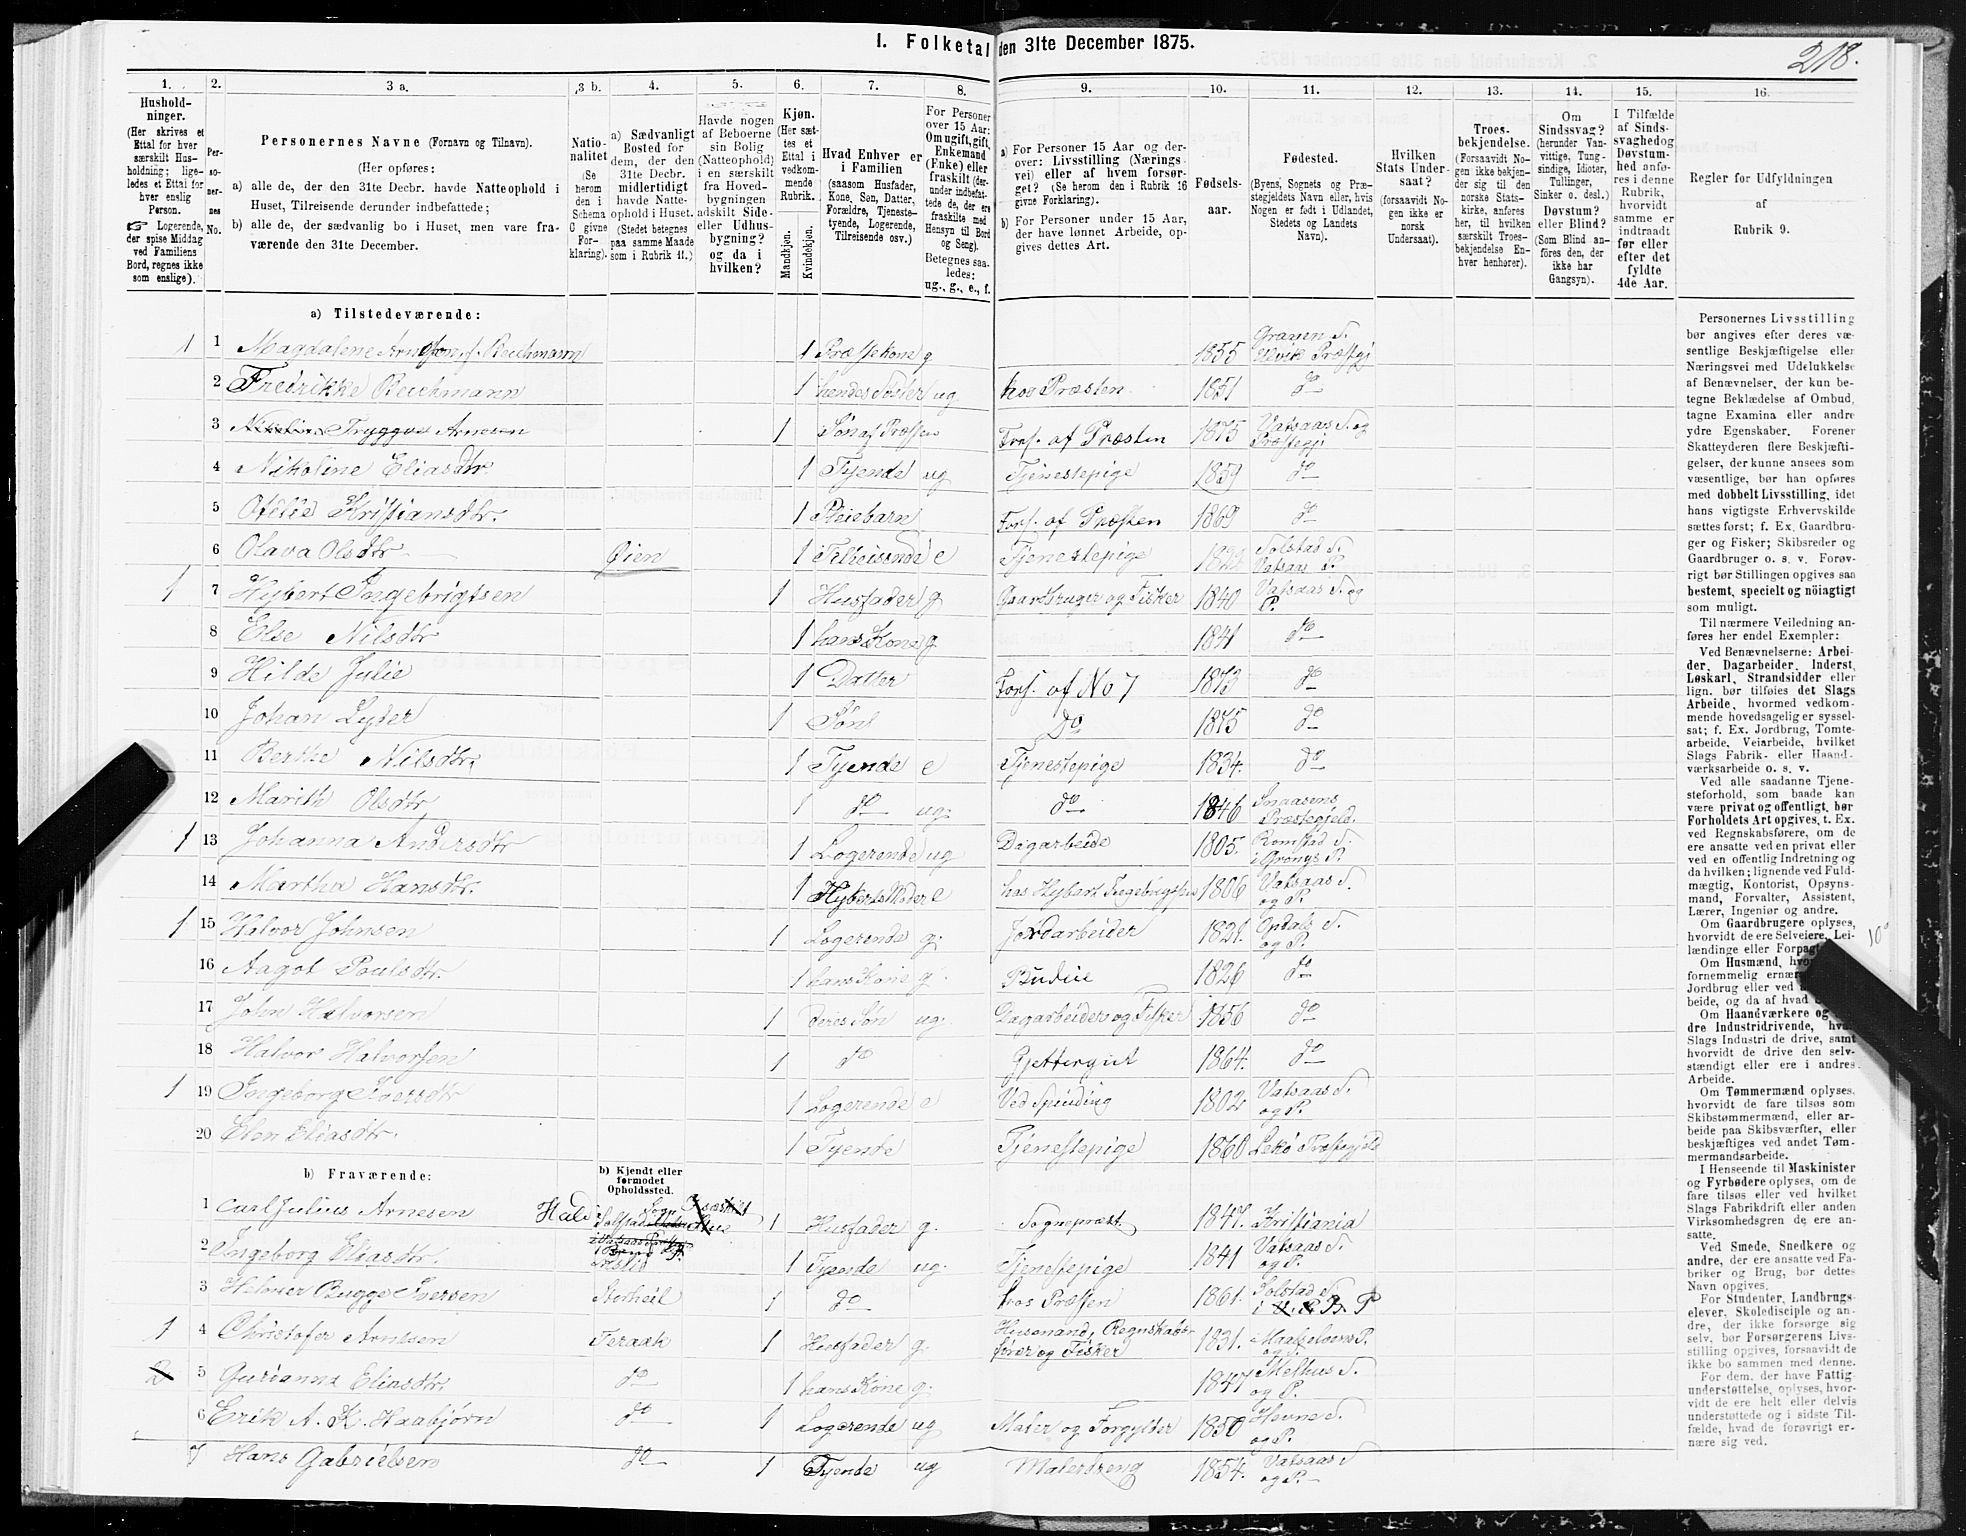 1. Folketal den 31te December 1875.
218.
1. 2. 3 a. 3 b. 4. 5. 6. 7. 8. 9. 10. 11. 12. 13. 14. 15. 16.
Hushold-
ninger.
(Her skrives et
Ettal for hver
særskilt Hus-
holdning; lige-
ledes et Ettal for
hver enslig
Person.
☞ Logerende,
der spise Middag
ved Familiens
Bord, regnes ikke
som enslige).
Per-
so-
ner-
nes
No.
Personernes Navne (Fornavn og Tilnavn).
(Her opføres:
a) alle de, der den 31te Decbr. havde Natteophold i
Huset, Tilreisende derunder indbefattede;
b) alle de, der sædvanlig bo i Huset, men vare fra-
værende den 31te December.
Natio-
nalitet
(Se
herom
den i
Schema
C givne
For-
klaring).
a) Sædvanligt
Bosted for
dem, der den
31te Decbr.
midlertidigt
havde Natte-
ophold i Huset.
(Stedet betegnes
paa samme Maade
som i Rubrik 11.)
Havde nogen
af Beboerne
sin Bolig
(Natteophold)
i en særskilt
fra Hoved-
bygningen
adskilt Side-
eller Udhus-
bygning?
og da i
hvilken?
Kjøn.
(Her sæt-
tes et
Ettal i
vedkom-
mende
Rubrik.)
Mandkjøn.
Kvindekjøn.
Hvad Enhver er
i Familien
(saasom Husfader,
Kone, Søn, Datter,
Forældre, Tjeneste-
tyende, Logerende,
Tilreisende osv.)
For Personer
over 15 Aar:
Om ugift, gift,
Enkemand
(Enke) eller
fraskilt (der-
under indbefat-
tede de, der ere
fraskilte med
Hensyn til Bord
og Seng).
Betegnes saa-
ledes:
ug., g., e., f.
a) For Personer 15 Aar og der-
over: Livsstilling (Nærings-
vei) eller af hvem forsør-
get? (Se herom den i Rubrik 16
givne Forklaring).
b) For Personer under 15 Aar,
der have lønnet Arbeide, op-
gives dettes Art.
Fødsels-
aar.
Fødested.
(Byens, Sognets og Præ-
stegjeldets Navn eller, hvis
Nogen er født i Udlandet,
Stedets og Landets
Navn).
Hvilken
Stats Under-
saat?
(forsaavidt No-
gen ikke er
norsk
Undersaat).
Troes-
bekjendelse.
(Forsaavidt No-
gen ikke bekjen-
der sig til den
norske Stats-
kirke, anføres
her, til hvilken
særskilt Troes-
bekjendelse En-
hver henhører).
Om
Sindssvag?
(herunder Van-
vittige, Tung-
sindige, Idioter,
Tullinger,
Sinker o. desl.)
Døvstum?
eller Blind?
(Som Blind an-
føres den, der
ikke har
Gangsyn).
I Tilfælde
af Sinds-
svaghed og
Døvstum-
hed anfø-
res i denne
Rubrik,
hvorvidt
samme er
indtraadt
før eller
efter det
fyldte
4de Aar.
Regler for Udfyldningen
af
Rubrik 9.
a) Tilstedeværende:
1 1 Magdalene Arnesen f. Reichmann 1 Præstekone g 1855 Graven S. Ulvik Præstgj
2 Fredrikke Reichmann 1 hendes Søster ug hos Præsten. 1851 do
3 Trygve Arnesen 1 Søn af Præsten Fors. af Præsten 1875 Vatsaas S. og Præstegj
4 Nikoline Eliasdtr. 1 Tyende ug Tjenestepige 1859 do
5 Kristiansdtr. 1 Pleiebarn Fors. af Præsten 1869 do
6 Olava Olsdtr Øien 1 Tilreisende e Tjenestepige 1822 Solstad S. Vatsaas P.
1 7 Hybert Ingebrigtsen 1 Husfader g Gaardbruger og Fisker 1840 Vatsaas S. og P.
8 Else Nilsdtr 1 hans Kone g. 1841 do
9 Hilde Julie 1 Datter Fors. af No 7 1873 do
10 Johan Lyder 1 Søn do 1875 do
11 Berthe Nilsdtr. 1 Tyende e Tjenestepige 1834. do
12 Marith Olsdtr 1 do ug. do 1846 Snaasens Præstegjeld.
1 13 Johanna Andersdtr 1 Logerende ug Dagarbeide 1805. Romstad S. i Grongs P.
14 Martha Hansdtr. 1 Hyberts Moder e hos Hybert Ingebrigtsen 1806 Vatsaas S. og P.
1 15 Halvor Johnsen 1 Logerende g. Jordarbeider 1821. Opdals S. og P.
16 Aagot Poulsdtr. 1 hans Kone g. Budeie 1826 do
17 John Halvorsen 1 deres Søn ug. Dagarbeider og Fisker 1856 do
18 Halvor Halvorsen 1 do Gjettergut 1864. do
1 19 Ingeborg Iversdtr 1 Logerende e Ved Spinding 1802 Vatsaas S. og P.
20 Elen Eliasdtr. 1 Tyende Tjenestepige 1860 Lekø Præstegjeld
b) Fraværende:
b) Kjendt eller
formodet
Opholdssted.
1 Carl Julius Arnesen 1 Husfader g. Sognepræst. 1847. Kristiania
2 Ingeborg Eliasdtr. 1 Tyende ug. Tjenestepige 1841 Vatsaas S. og P.
3 Bugge Iversen 1 do hos Præsten 1861. Solstad S. i B. P
1 4 Christofer Arnesen Teraak 1 Husfader g. Husmand, Regnskabs- fører og Fisker 1831. Maalselvens P. og S.
2 5 Gurianna Eliasdtr. do 1 hans Kone g. 1847 Melhus S. og P.
6 Erik A. K. Haabjørn do 1 Logerende ug Maler og Forgylder 1850 Hevne S. og P.
7 Hans Gabrielsen do 1 Tyende ug Malerdreng 1854. Vatsaas S og P.
Personernes Livsstilling
bør angives efter deres væ-
sentlige Beskjæftigelse eller
Næringsvei med Udelukkelse
af Benævnelser, der kun be-
tegne Beklædelse af Ombud,
tagne Examina eller andre
ydre Egenskaber. Forener
Skatteyderen flere Beskjæfti-
gelser, der kunne ansees som
væsentlige, bør han opføres
med dobbelt Livsstilling, idet
hans vigtigste Erhvervskilde
sættes først; f. Ex. Gaardbru-
ger og Fisker; Skibsreder og
Gaardbruger o. s. v. Forøv-
rigt bør Stillingen opgives saa
bestemt, specielt og nöiagtigt
som muligt.
Til nærmere Veiledning an-
føres her endel Exempler:
Ved Benævnelserne: Arbei-
der, Dagarbeider, Inderst,
Løskarl, Strandsidder eller
lign. bør tilføies det Slags
Arbeide, hvormed vedkom-
mende hovedsagelig er syssel-
sat; f. Ex. Jordbrug, Tomte-
arbeide, Veiarbeide, hvilket
Slags Fabrik- eller Haand-
værksarbeide o. s. v.
Ved alle saadanne Tjene-
steforhold, som baade kan
være privat og offentligt, bør
Forholdets Art opgives, t. Ex.
ved Regnskabsførere, om de
ere ansatte ved en privat eller
ved en offentlig Indretning og
da hvilken; lignende ved Fuld-
mægtig, Kontorist, Opsyns-
mand, Forvalter, Assistent,
Lærer, Ingeniør og andre.
Om Gaardbrugere oplyses,
hvorvidt de ere Selveiere, Lei-
lændinge eller
Om Husmænd,
fornemmelig
Jordbrug eller ved
beide, og da af hvad
Om Haandværkere og
dre Industridrivende,
Slags Industri de drive, samt
hvorvidt de drive den selv-
stændigt eller ere i andres
Arbeide.
Om Tømmermænd oplyses,
hvorvidt de fare tilsøs som
Skibstømmermænd, eller ar-
beide paa Skibsværfter, eller
beskjæftiges ved andet Tøm-
mermandsarbeide.
I Henseende til Maskinister
og Fyrbødere oplyses, om de
fare tilsøs eller ved hvilket
Slags Fabrikdrift eller anden
Virksomhedsgren de ere an-
satte.
Ved Smede, Snedkere og
andre, der ere ansatte ved Fa-
briker og Brug, bør dettes
Navn opgives.
For Studenter, Landbrugs-
elever, Skoledisciple og an-
dre, der ikke forsørge sig
selv, bør Forsørgerens Livs-
stilling opgives, forsaavidt de
ikke bo sammen med denne.
For dem, der have Fattig-
understøttelse, oplyses, hvor-
vidt de ere helt eller delvis
understøttede og i sidste Til-
fælde, hvad de forøvrigt er-
nære sig ved.